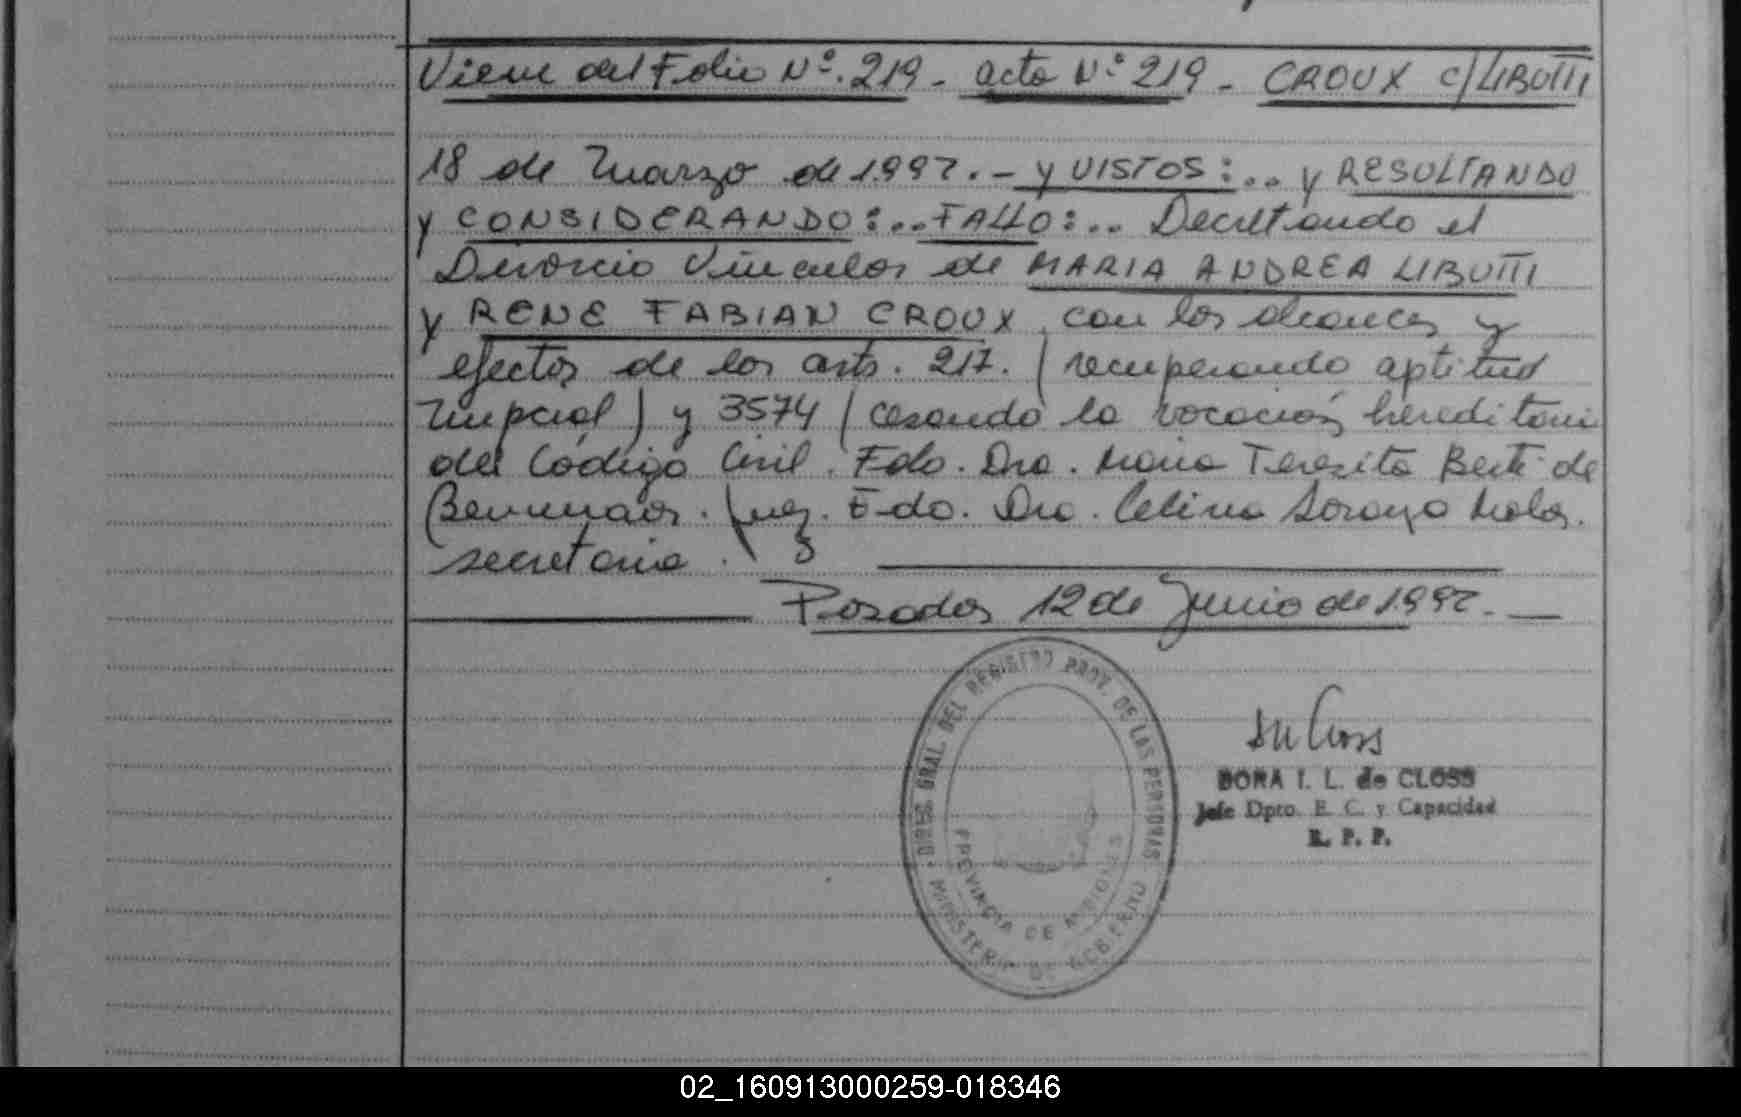 Viene del Folio Nº. 219 - acta Nº 219 - CROUX c/LIBUTTI
18 de Marzo de 1.997. - y VISTOS:.. y RESULTANDO
y CONSIDERANDO:..FALLO:.. Decretando el
Divorcio Vincular de MARIA ANDREA LIBUTTI
y RENE FABIAN CROUX, con los alcances y
efectos de los arts. 217. (recuperando aptitud
nupcial) y 3574 (cesando la vocación hereditaria
del Código Civil. Fdo. Dra. Maria Teresita de
Juez. Fdo. Dra. Celina
secretaria.
Posadas 12 de Junio de 1.997.
DIREC GRAL. DEL REGISTRO PROV. DE LAS PERSONAS
PROVINCIA DE MISIONES
MINISTERIO DE GOBIERNO
DORA I. L. de CLOSS
Jefe Dpto. E. C. y Capacidad
R. P. P.
02_160913000259-018346